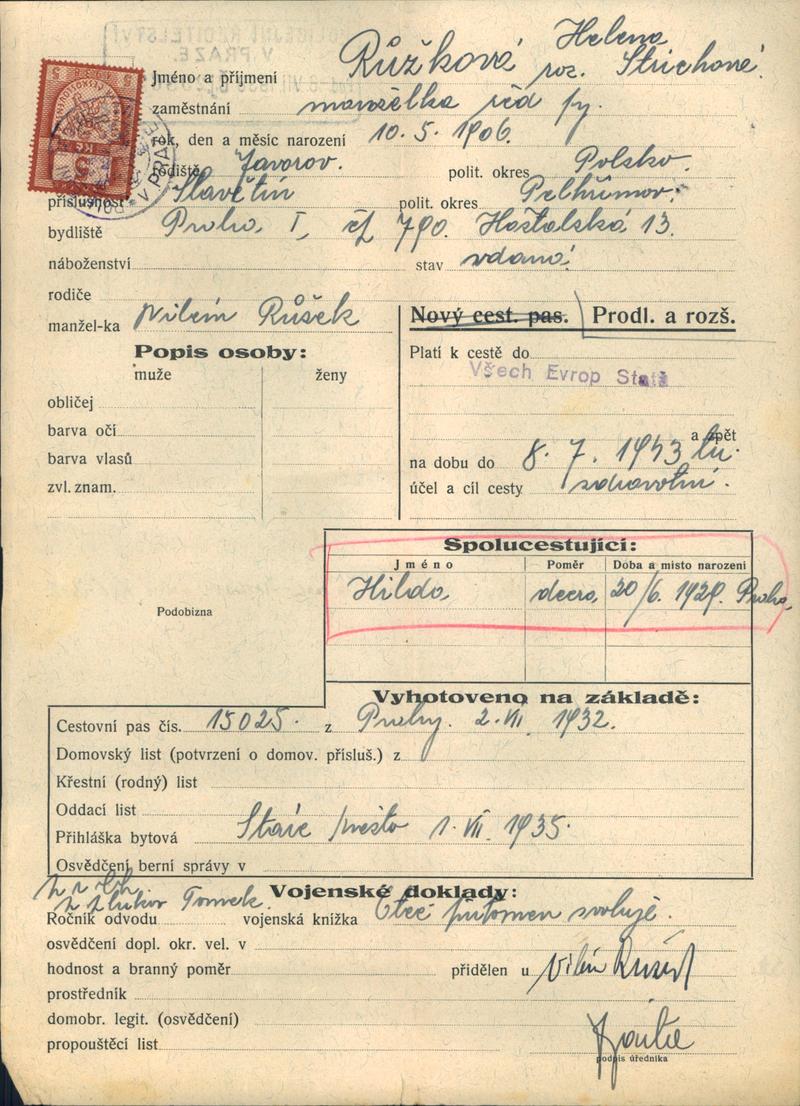 Helena
Jméno a příjmení Růžková roz. Strichová.
zaměstnání manželka úřd fy.
rok, den a měsíc narození 10. 5. 1906.
rodiště Javorov. polit. okres Polsko.
příslušnost Slavětín polit. okres Pelhřimov.
bydliště Praha I, čp 790. Haštalská 13.
náboženství stav vdaná.
rodiče
manžel-ka Vilém Růžek
Nový cest. pas. Prodl. a rozš.
Popis osoby:
muže ženy
obličej
barva očí
barva vlasů
zvl. znam.
Platí k cestě do
Všech Evrop Států
a zpět
na dobu do 8. 7. 1943
účel a cíl cesty zdravotní.
Podobizna
Spolucestující:
Jméno Poměr Doba a místo narození
Hilda dcera 20/6. 1929. Praha
Vyhotoveno na základě:
Cestovní pas čís. 15025. z Prahy. 2. VII. 1932.
Domovský list (potvrzení o domov. přísluš.) z
Křestní (rodný) list
Oddací list
Přihláška bytová Staré město 1. VII. 1935.
Osvědčení berní správy v
Vojenské doklady:
Ročník odvodu vojenská knížka Otec přítomen svoluje.
osvědčení dopl. okr. vel. v
hodnost a branný poměr přidělen u Vilém Růžek
prostředník
domobr. legit. (osvědčení)
propouštěcí list
podpis úředníka